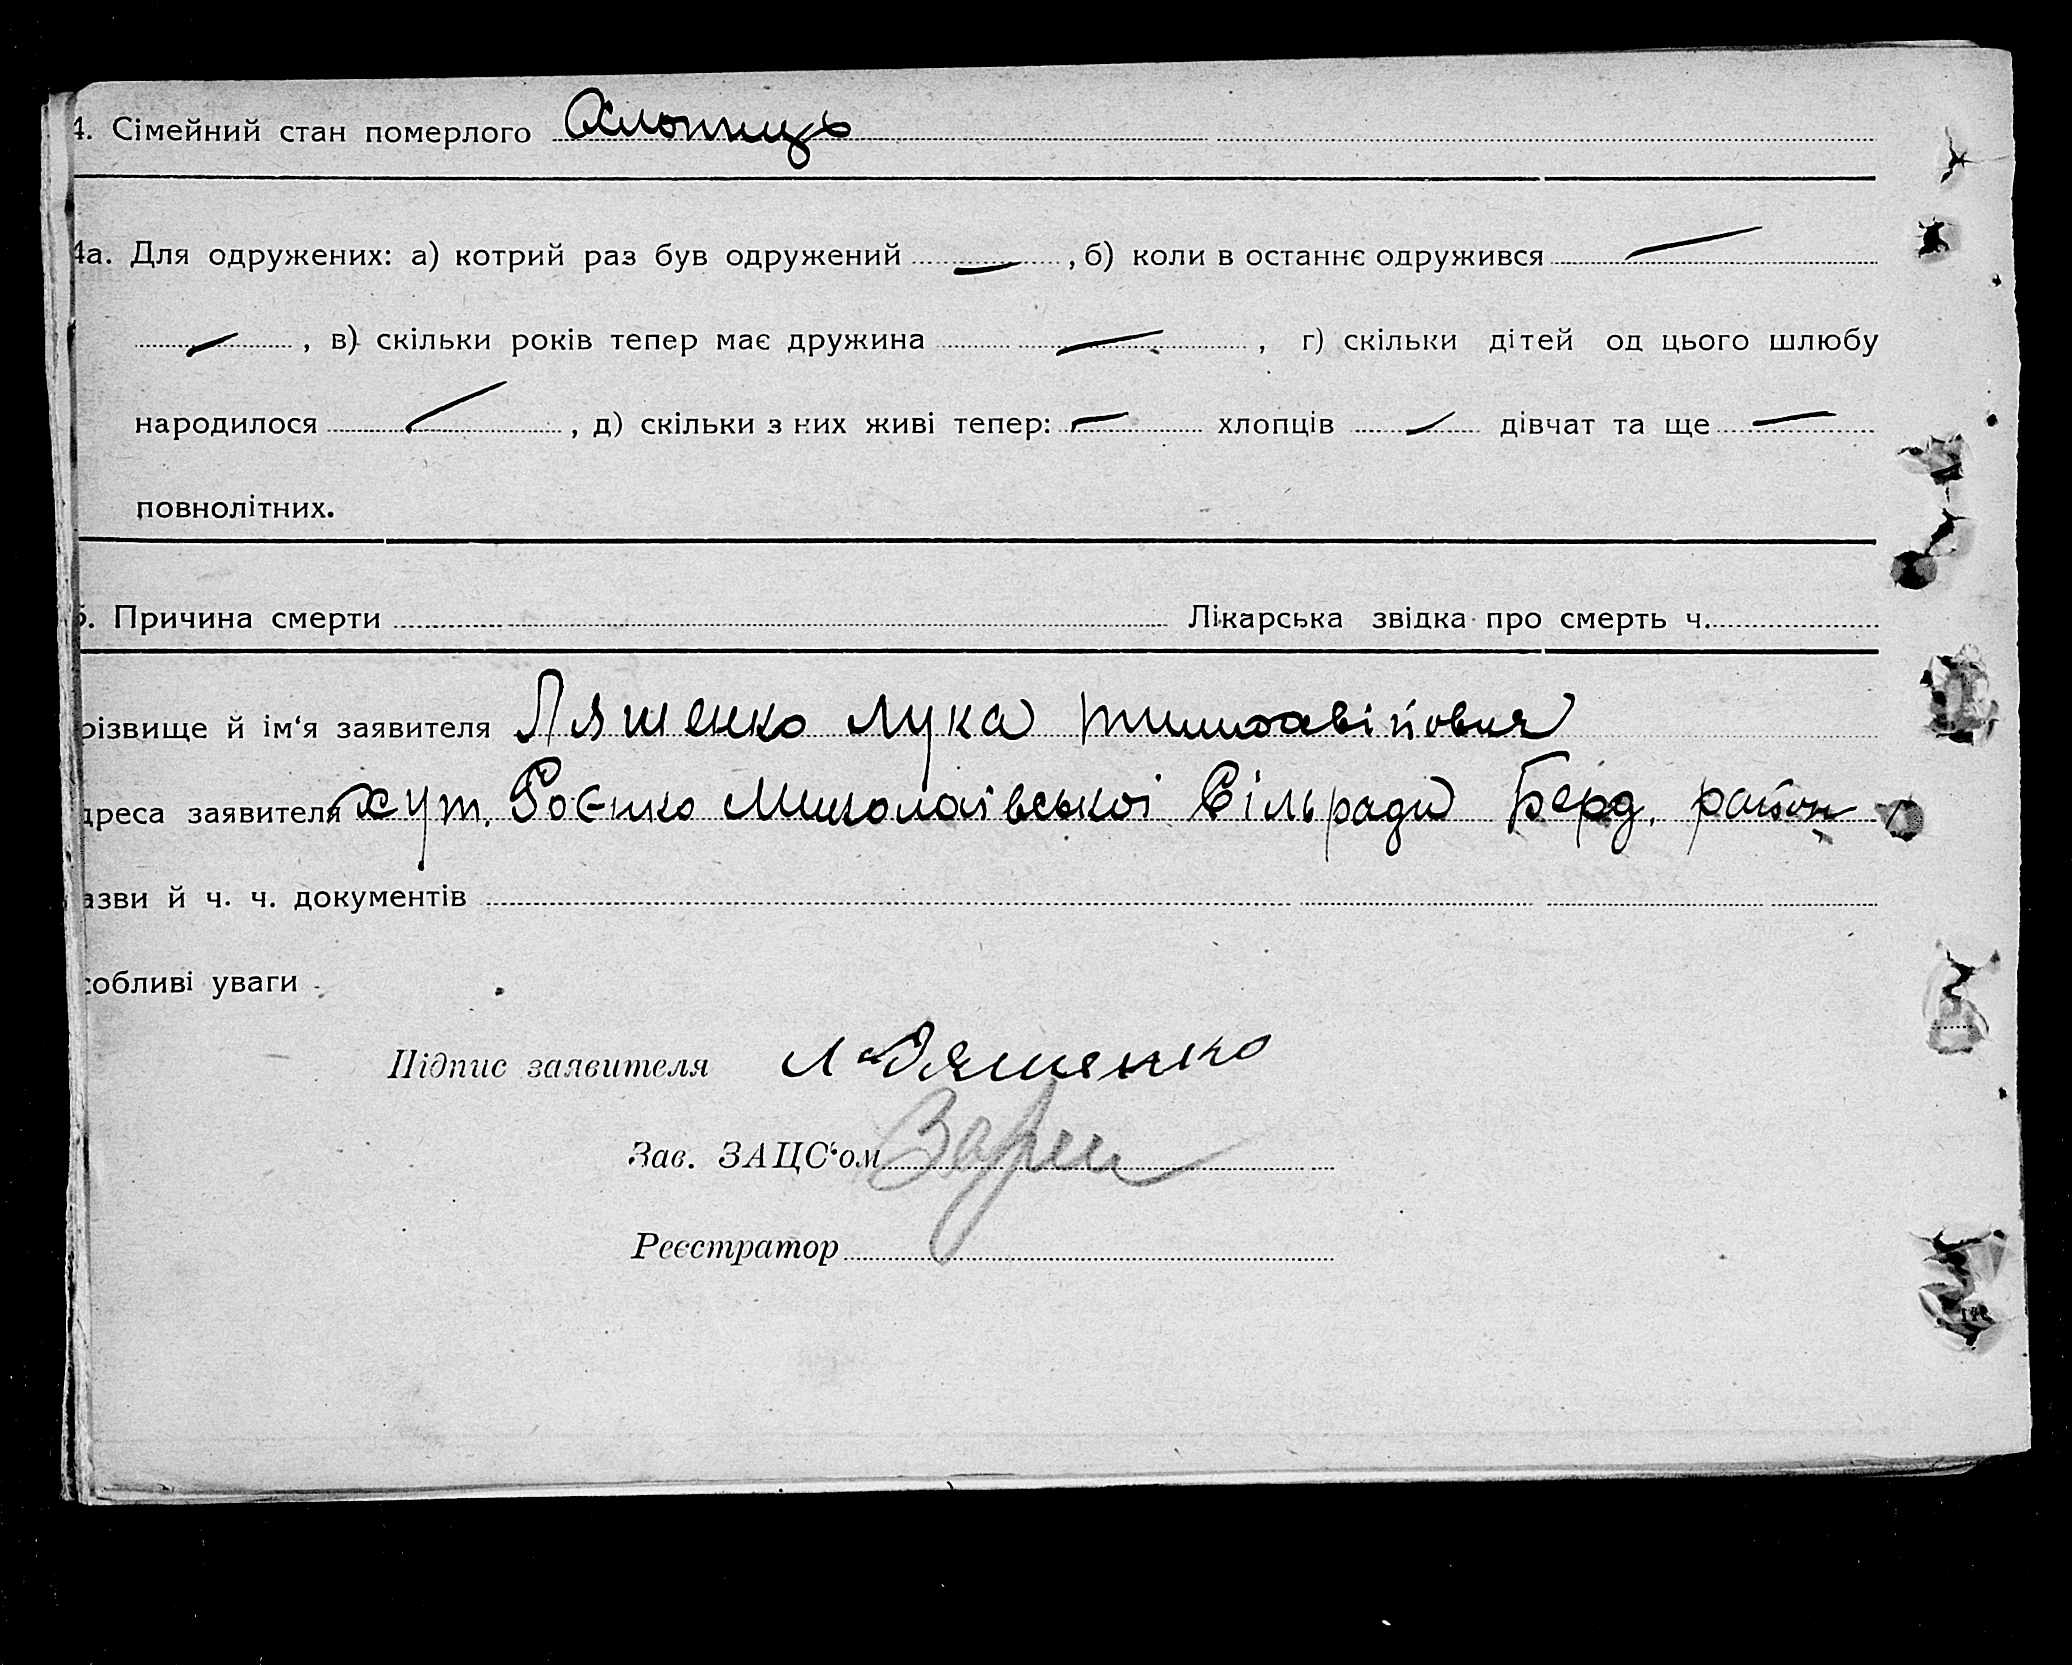 4. Сімейний стан померлого Хлопиць
4а. Для одружених: а) котрий раз був одружений —, б) коли в останнє одружився —
—, в) скільки років тепер має дружина —, г) скільки дітей од цього шлюбу
народилося —, д) скільки з них живі тепер: — хлопців — дівчат та ще —
повнолітних.
5. Причина смерти Лікарська звідка про смерть ч.
різвище й ім‘я заявителя Ляшенко Лука
дреса заявителя хут. Роєнко Миколаївської Сільради Берд. район
азви й ч. ч. документів
собливі уваги
Підпис заявителя Ляшенко
Зав. ЗАЦС‘ом
Реєстратор